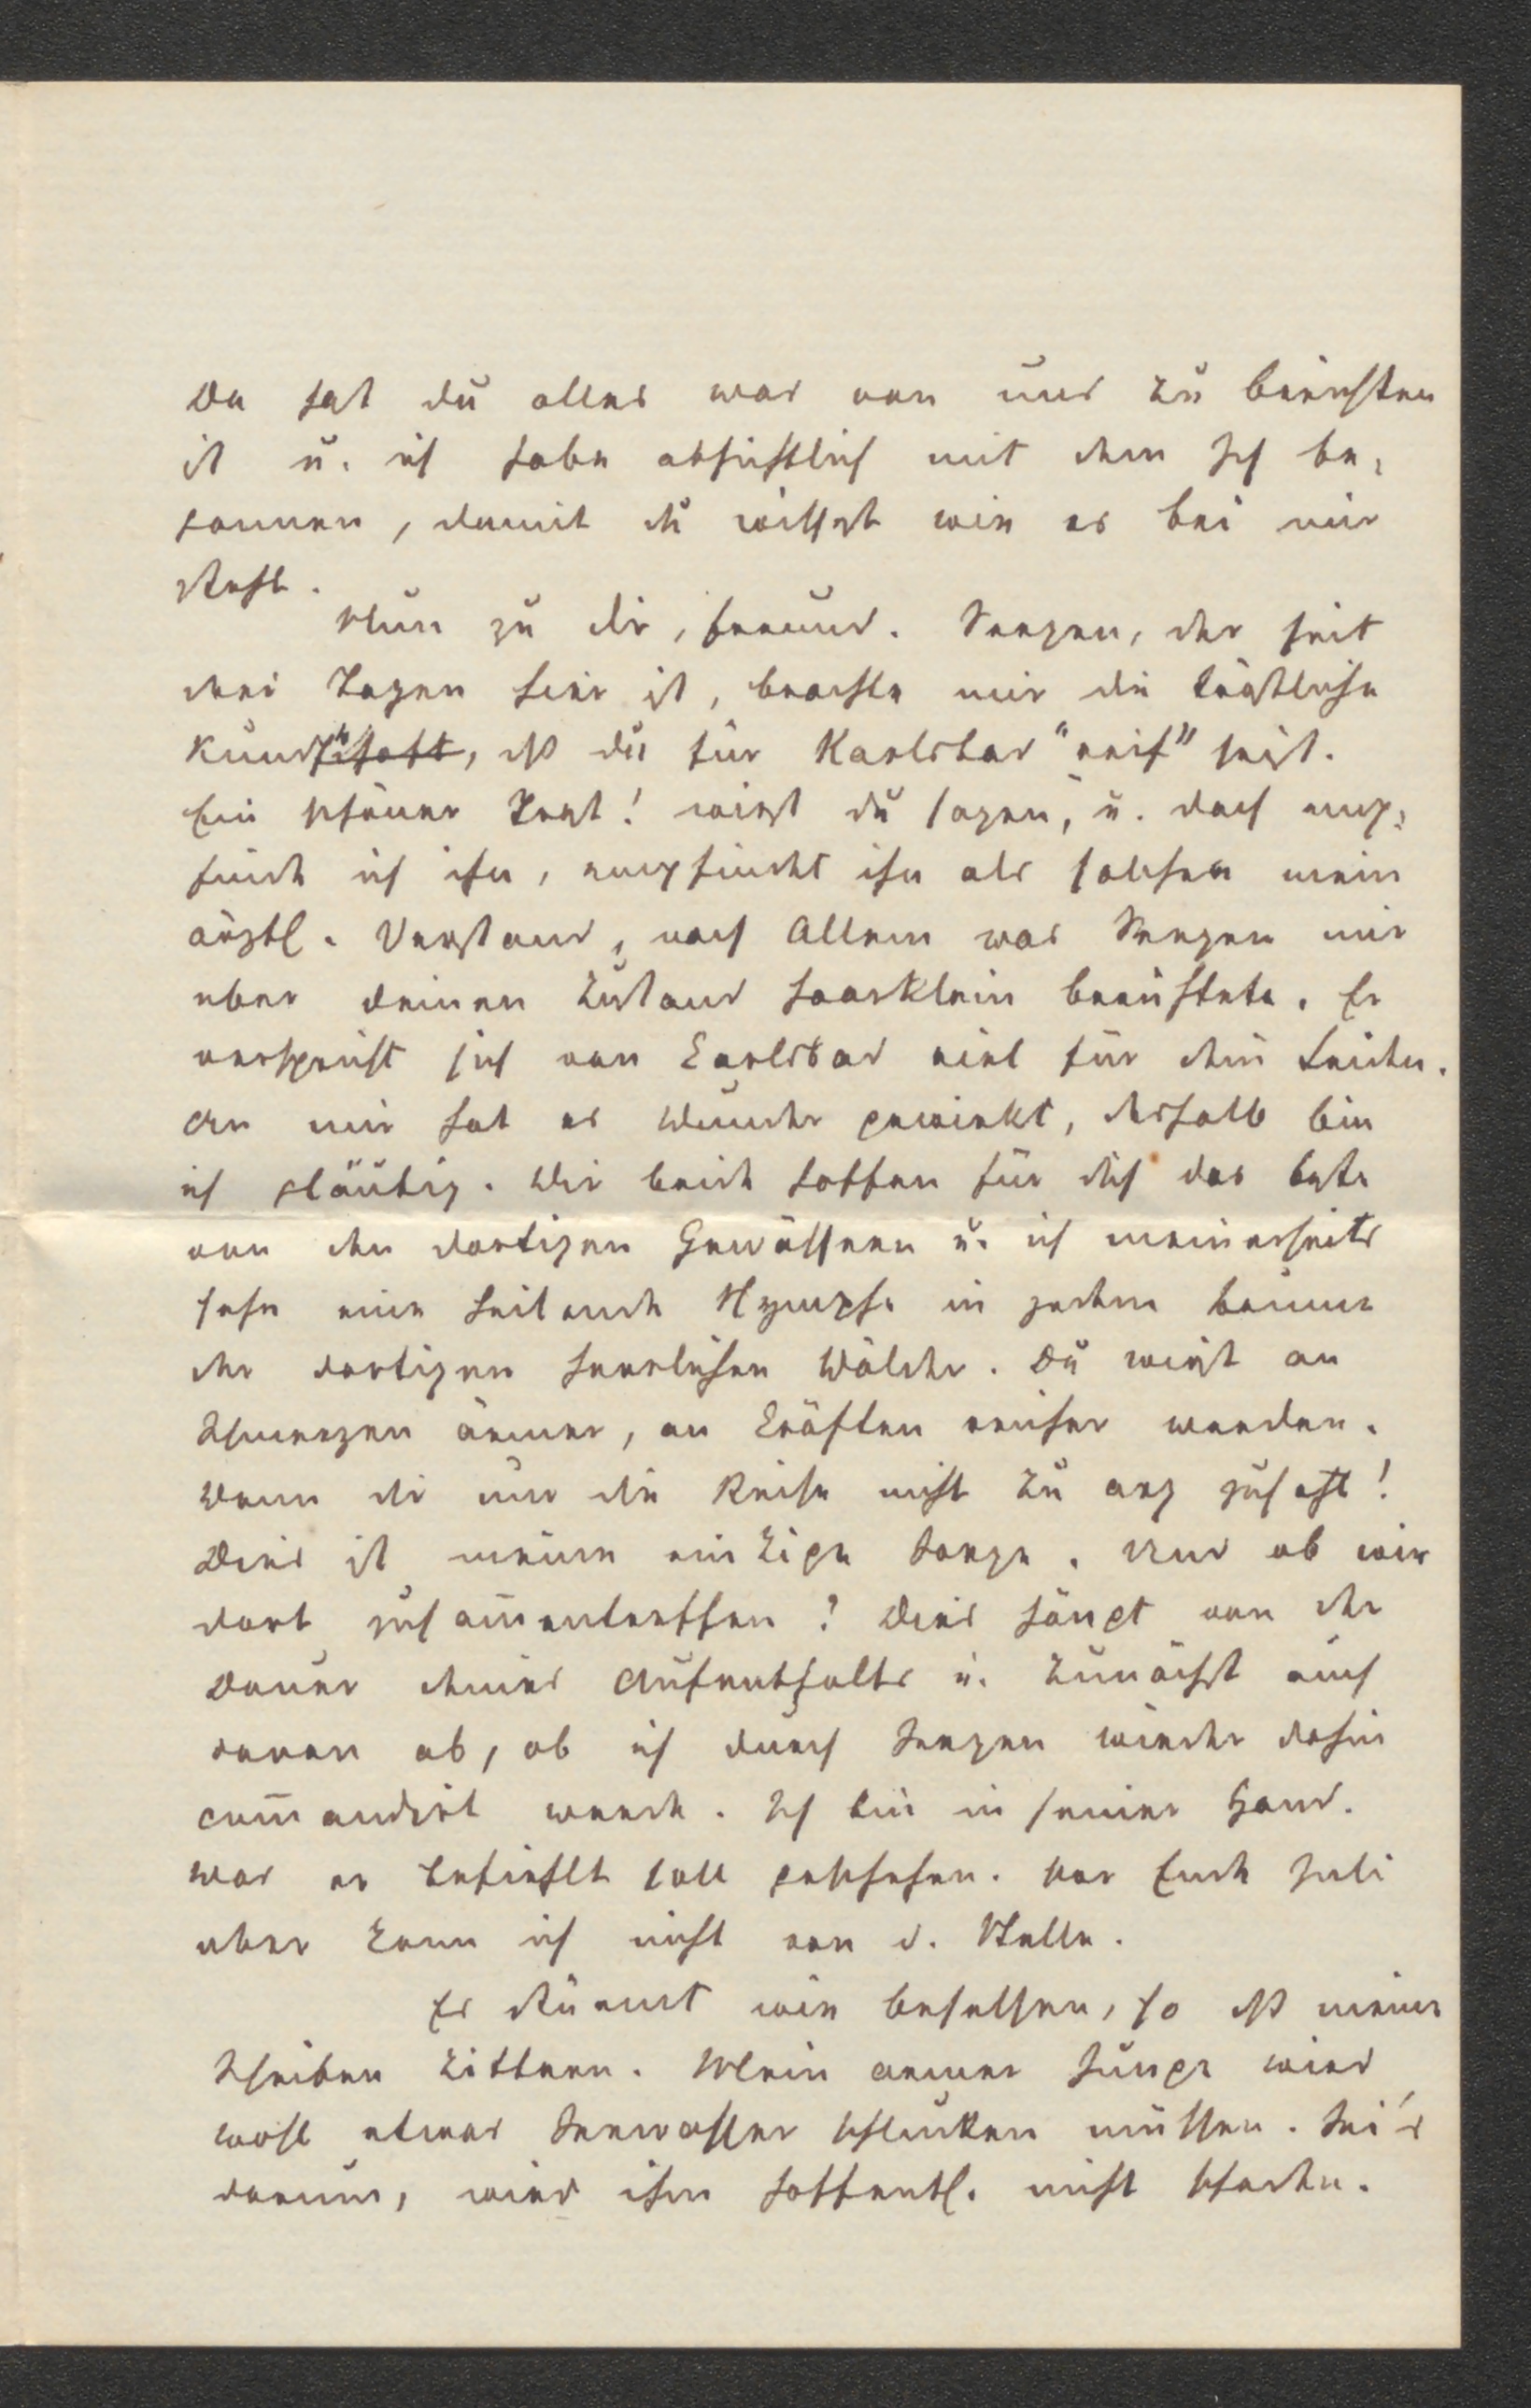 Da hast du alles was von uns zu berichten
ist u. ich habe absichtlich mit dem Ich be-
gonnen, damit du wissest wie es bei mir
steht.
Nun zu dir, freund. Seegen, der seit
drei Tagen hier ist, brachte mir die tröstliche
Kunde, dß du für Karlsbad "reif" seist.
Ein schöner Trost! wirst du sagen, u. doch emp-
finde ich ihn, empfindet ihn als solchen mein
ärztl. Verstand, nach Allem was Seegen mir
über deinen Zustand haarklein berichtete. Er
verspricht sich von Carlsbad viel für dein Leiden.
An mir hat es Wunder gewirkt, deshalb bin
ich gläubig. Wir beide hoffen für dich das beste
von den dortigen Gewässern u. ich meinerseits
sehe eine heilende Nymphe in jedem baume
der dortigen herrlichen Wälder. Du wirst an
Schmerzen ärmer, an Kräften reicher werden.
Wenn dir nur die Reise nicht zu arg zusetzt!
Dies ist meine einzige Sorge. Und ob wir
dort zusam̅entreffen? Dies hängt von der
Dauer deines Aufenthalts u. zunächst auch
davon ab, ob ich durch Seegen wieder dahin
com̅andirt werde. Ich bin in seiner Hand.
Was er befiehlt soll geschehen. Vor Ende Juli
aber kann ich nicht von d. Stelle.
Es stürmt wie besessen, so dß meine
Scheiben zittern. Mein armer Junge wird
wohl etwas Seewasser schlucken müssen. Sei's
darum, wird ihm hoffentl. nicht schaden.